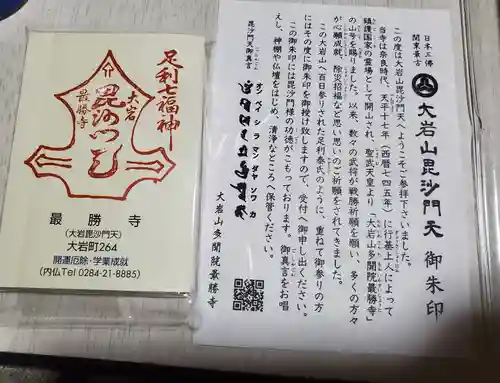 足利七福神
大岩
毘沙門天
最勝寺
最勝寺
(大岩毘沙門天)
大岩町264
開運厄除・学業成就
(内仏Tel 0284-21-8885)
日本三佛
関東最古
大岩山毘沙門天 御朱印
この度は大岩山毘沙門天へようこそご参拝下さいました。
当寺は奈良時代、天平十七年（西暦七四五年）に行基上人によって
鎮護国家の霊場として開山され、聖武天皇より「大岩山多聞院最勝寺」
の山号を賜りました。以来、数々の武将が戦勝祈願を願い、多くの方々
が心願成就、除災招福など思い思いのご祈願をされてきました。
この大岩山へ百日参りされた足利泰氏のように、重ねて御参りの方
にはその度に御朱印を御授け致しますので、受付へ御申し出ください。
この御朱印には毘沙門様の功徳がこもっております。御真言をお唱
えし、神棚や仏壇をはじめ、清浄なところへ保管ください。
毘沙門天御真言
オン ベイ シラ マンダヤ ソワカ
大岩山多聞院最勝寺